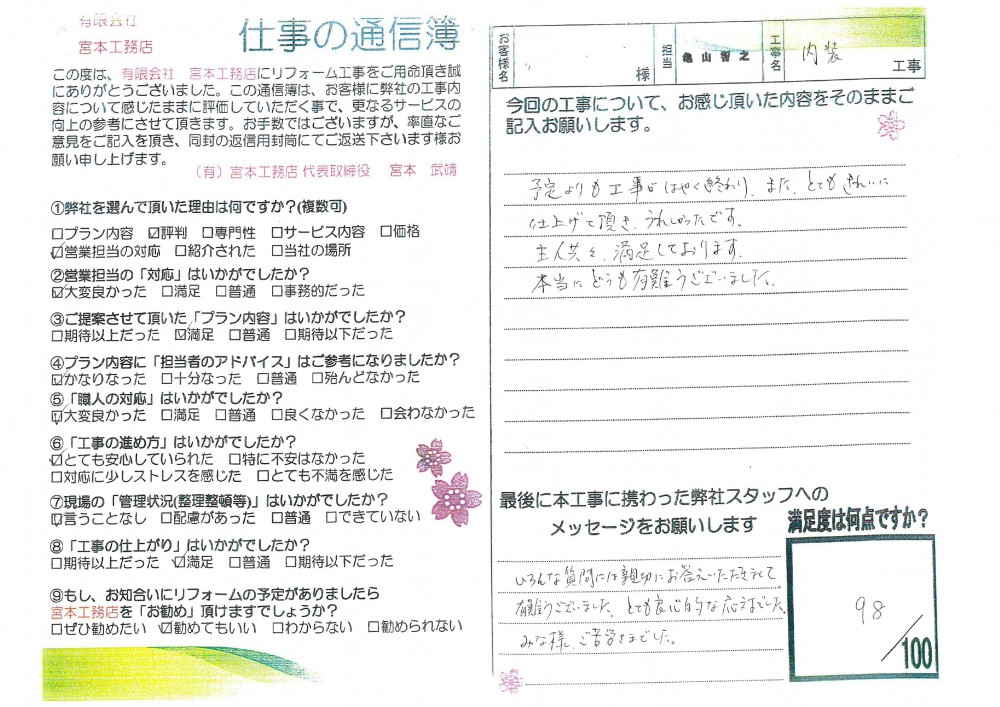 有限会社
宮本工務店
仕事の通信簿
この度は、有限会社 宮本工務店にリフォーム工事をご用命頂き誠
にありがとうございました。この通信簿は、お客様に弊社の工事内
容について感じたままに評価していただく事で、更なるサービスの
向上の参考にさせて頂きます。お手数ではございますが、率直なご
意見をご記入を頂き、同封の返信用封筒にてご返送下さいます様お
願い申し上げます。
（有）宮本工務店 代表取締役 宮本 武靖
①弊社を選んで頂いた理由は何ですか?(複数可)
□プラン内容 ☑評判 □専門性 □サービス内容 □価格
☑営業担当の対応 □紹介された □当社の場所
②営業担当の「対応」はいかがでしたか?
☑大変良かった □満足 □普通 □事務的だった
③ご提案させて頂いた「プラン内容」はいかがでしたか?
□期待以上だった ☑満足 □普通 □期待以下だった
④プラン内容に「担当者のアドバイス」はご参考になりましたか?
☑かなりなった □十分なった □普通 □殆んどなかった
⑤「職人の対応」はいかがでしたか?
☑大変良かった □満足 □普通 □良くなかった □会わなかった
⑥「工事の進め方」はいかがでしたか?
☑とても安心していられた □特に不安はなかった
□対応に少しストレスを感じた □とても不満を感じた
⑦現場の「管理状況(整理整頓等)」はいかがでしたか?
☑言うことなし □配慮があった □普通 □できていない
⑧「工事の仕上がり」はいかがでしたか?
□期待以上だった ☑満足 □普通 □期待以下だった
⑨もし、お知合いにリフォームの予定がありましたら
宮本工務店を「お勧め」頂けますでしょうか?
□ぜひ勧めたい ☑勧めてもいい □わからない □勧められない
お客様名 様 担当 亀山智之 工事名 内装 工事
今回の工事について、お感じ頂いた内容をそのままご
記入お願いします。
予定よりも工事がはやく終わり、また、とてもきれいに
仕上げて頂き、うれしかったです。
主人共々、満足しております。
本当にどうも有難うございました。
最後に本工事に携わった弊社スタッフへの
メッセージをお願いします
いろんな質問には親切にお答えいただきまして
有難うございました。とても良心的な応対でした。
みな様、ご苦労さまでした。
満足度は何点ですか?
98
/100